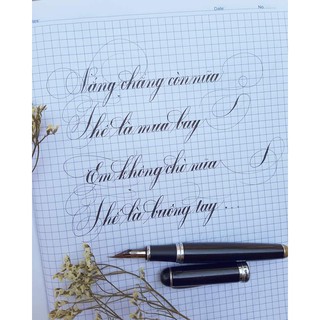 Date
No
Nắng chẳng còn nữa
Thế là mưa bay
Em không chờ nữa
Thế là buông tay ...